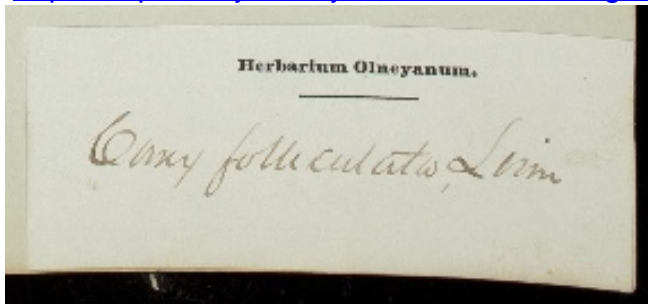 Herbarium Olneyanum.
Carex folliculata, Linn